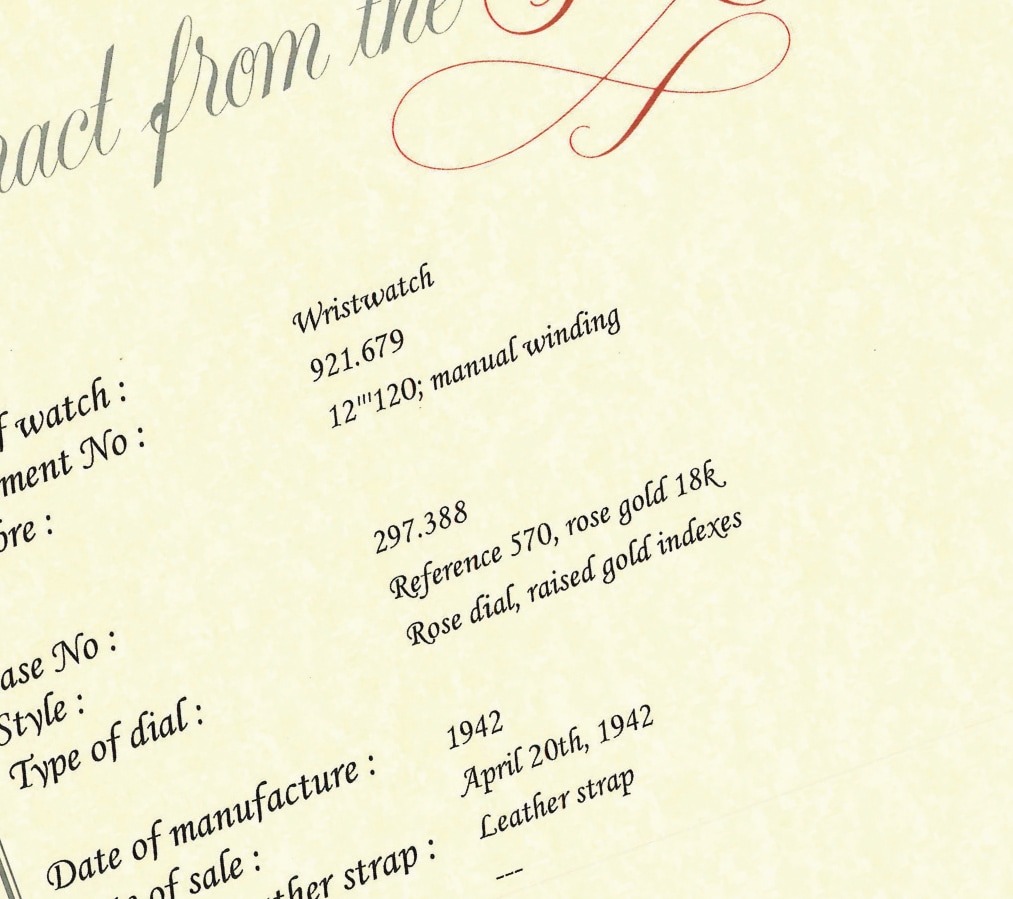 from the
Wristwatch
watch :
921.679
No :
12'''120; manual winding
297.388
No :
Reference 570, rose gold 18k
Style :
Rose dial, raised gold indexes
Type of dial :
1942
Date of manufacture :
April 20th, 1942
of sale :
Leather strap
strap :
---